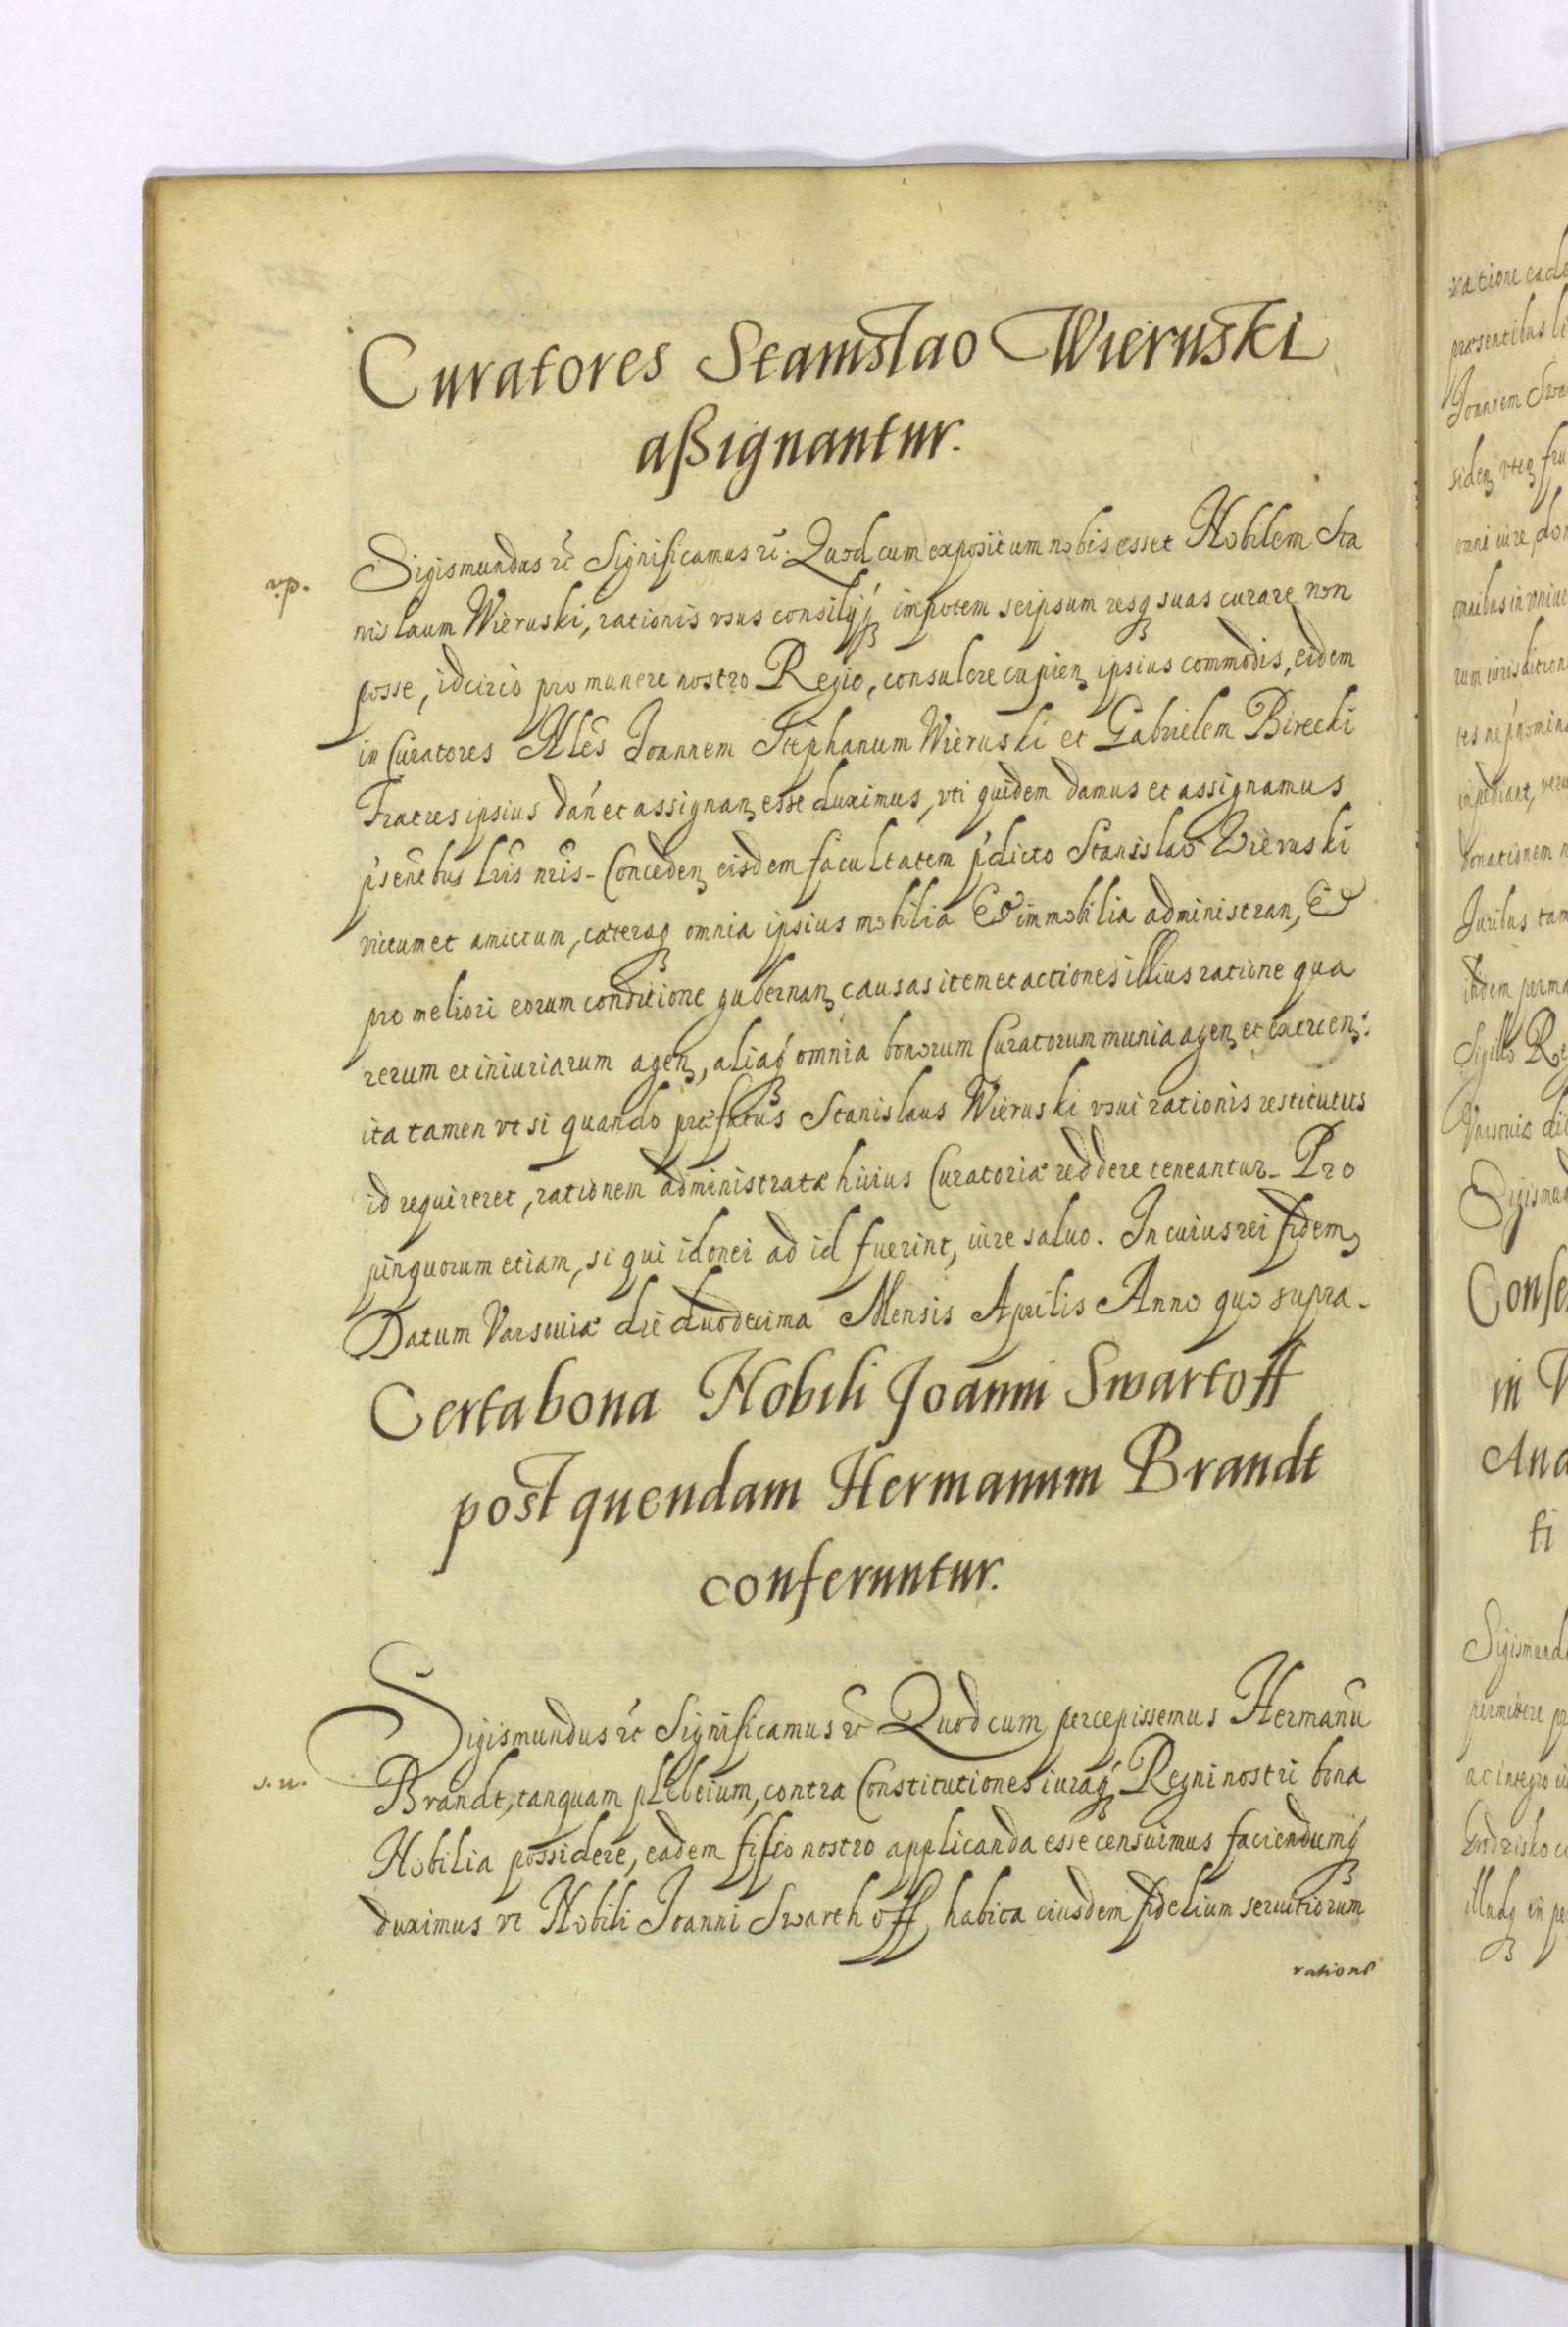 Curatores Stanislao Wieruski
aßignantur.
v.p.
Sigismundus etc̃ Significamus etc̃. Quod cum expositum nobis esset Nobilem Sta
nislaum Wieruski, rationis vsus consilijq́ꝫ impotem seipsum resqꝫ suas curare non
posse, idcirco pro munere nostro Regio, consulere cupienꝫ ipsius commodis, eidem
in Curatores Nles Joannem Stephanum Wieruski et Gabrielem Birecki
Fratres ipsius dań et assignanꝫ esse duximus, vti quidem damus et assignamus
p̃senẽbus lr̃is nr̃is. Concedenꝫ eisdem facultatem p̃dicto Stanislao Wieruski
victum et amictum, cæteraqꝫ omnia ipsius mobilia Et immobilia administran, Et
pro meliori eorum conditione gubernanꝫ causas item et actiones illius ratione qua
rerum et iniuriarum agenꝫ, aliaq́ꝫ omnia bonorum Curatorum munia agenꝫ et exercenꝫ.
ita tamen vt si quando præfatus Stanislaus Wieruski vsui rationis restitutus
id requireret, rationem administratæ huius Curatoriæ reddere teneantur. Pro
pinquorum etiam, si qui idonei ad id fuerint, iure saluo. In cuius rei fidem
Datum Varsouiæ die duodecima Mensis Aprilis Anno quo supra.
Certa bona Nobili Joanni Swartoff
post quendam Hermannum Brandt
conferuntur.
Sigismundus etc̃ Significamus etc̃ Quod cum percepissemus Hermanũ
s.n.
Brandt, tanquam plebeium, contra Constitutiones iuraq́ꝫ Regni nostri bona
Nobilia possidere, eadem fisco nostro applicanda esse censuimus faciendumq́ꝫ
duximus vt Nobili Joanni Swarthoff, habita eiusdem fidelium seruitiorum
ratione
ratione eade
præsentibus li
Joannem Swa
sidenꝫ vtenꝫ fru
omni iure, do
omnibus in vniue
rum iurisdiction
impediant, veru
donationem n
Juribus tam
ibidem perma
Sigillo Re
Varsouiæ di
Sigismun
Confe
in V
And
ti
Sigismund
permittere p
ac integro iu
Grodzisko c